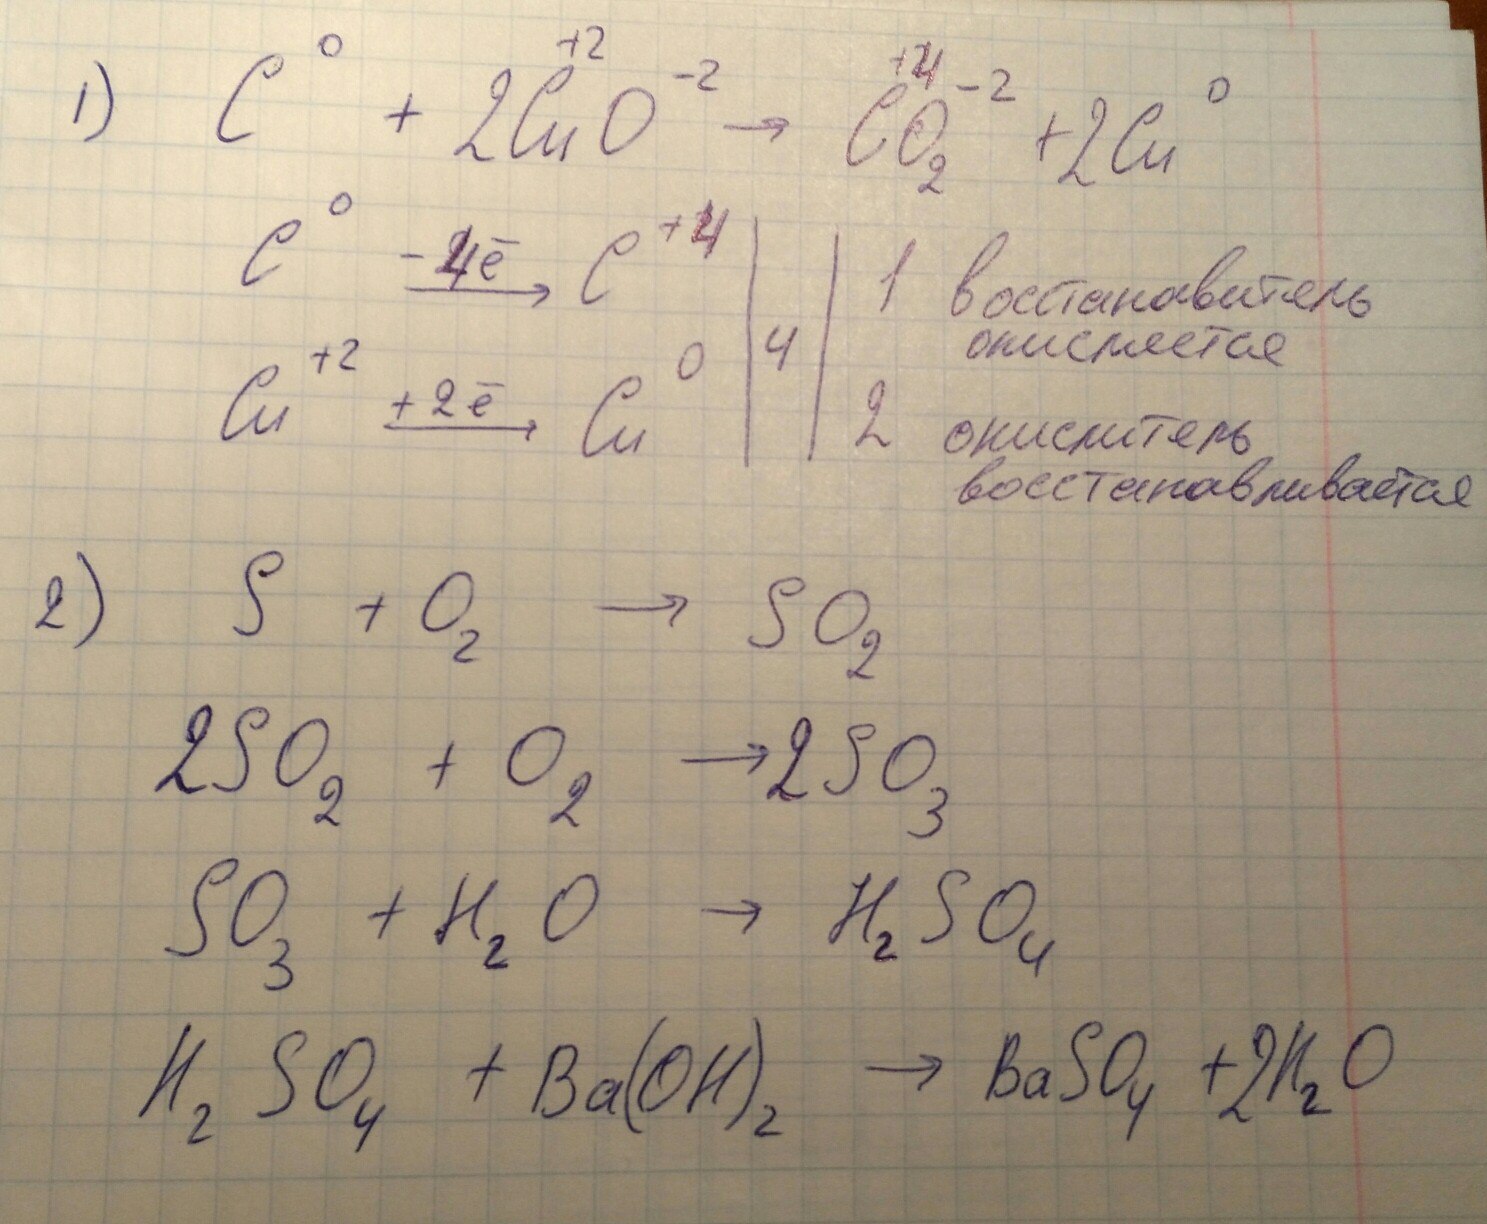 1) C⁰ + 2Cu⁺²O⁻² → C⁺⁴O₂⁻² + 2Cu⁰
C⁰ -4ē → C⁺⁴ | 4 | 1 восстановитель
окисляется
Cu⁺² +2ē → Cu⁰ | 2 окислитель
восстанавливается
2) S + O₂ → SO₂
2SO₂ + O₂ → 2SO₃
SO₃ + H₂O → H₂SO₄
H₂SO₄ + Ba(OH)₂ → BaSO₄ + 2H₂O